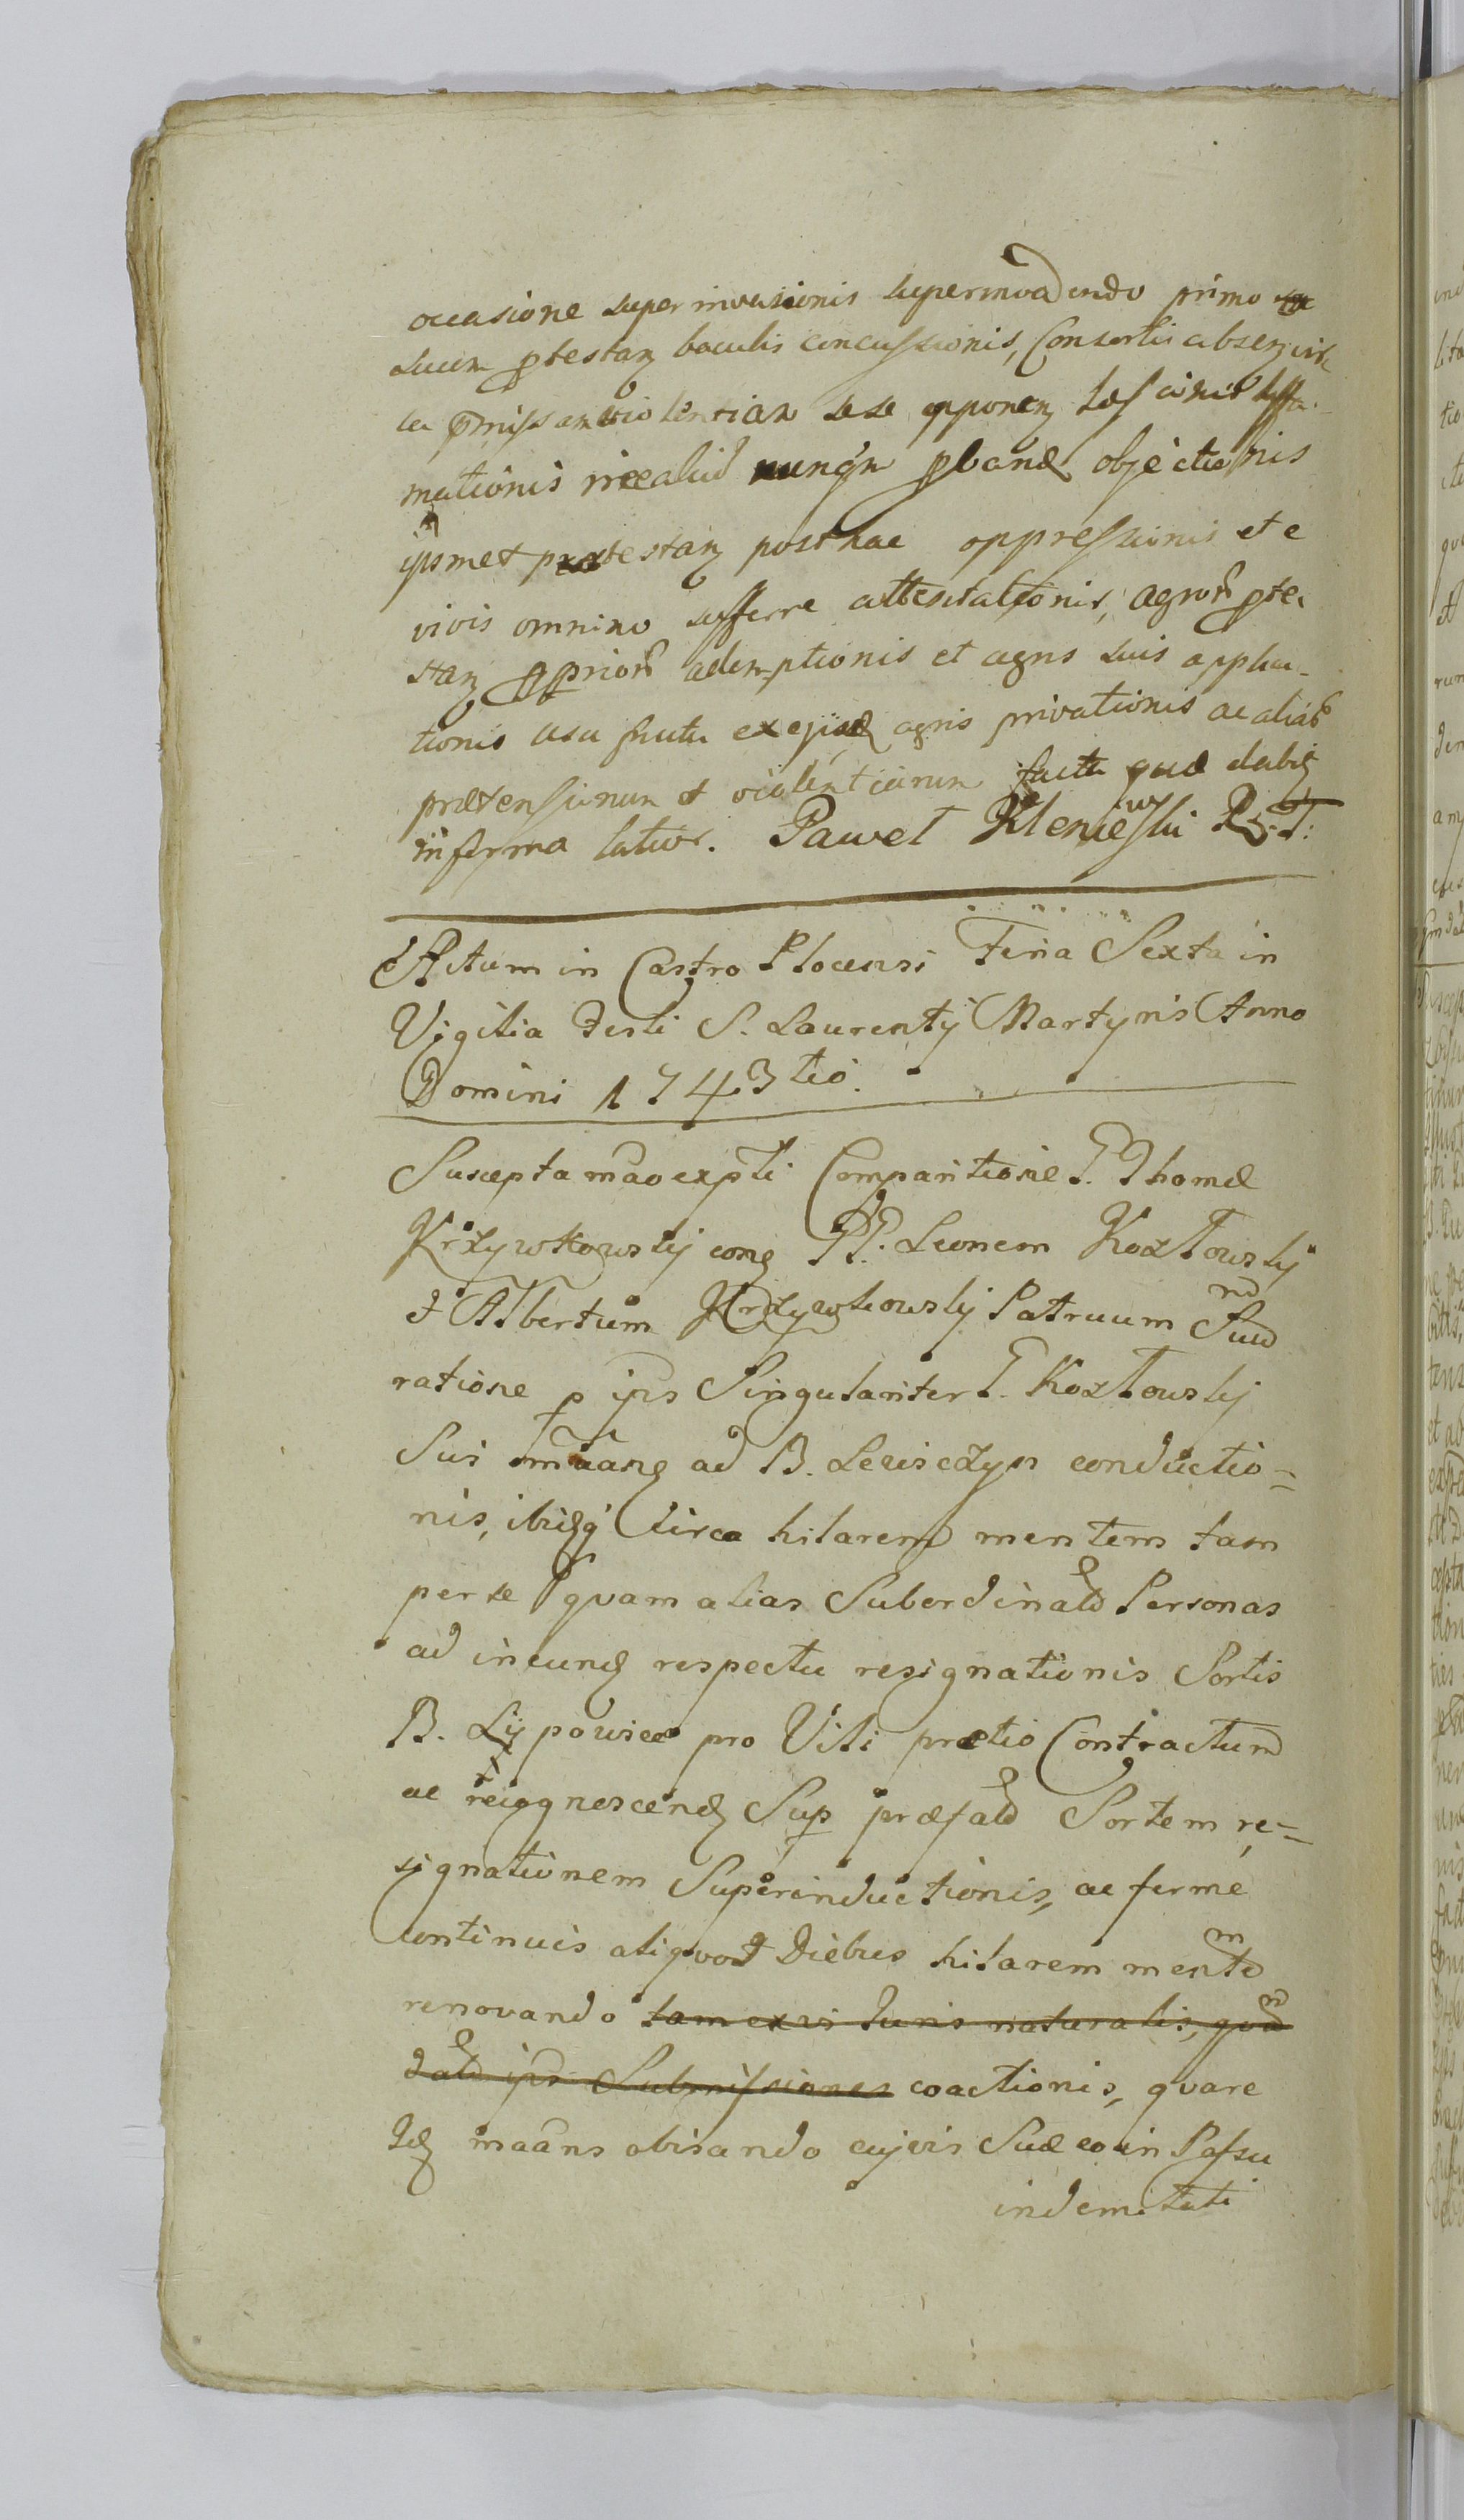 occasione superinvasionis superinvadendo primo
Lucem ptestan baculis concussionis, Consortis absen
la pmissam violentiam sese opponen
mationis nec aliud nunqm pband objectionis
ipsmet protestan posthac oppressionis et e
vivis omnino sufferre attestationis, agror pte
stan pprior ademptionis et agris suis applica-
tionis usu fructu ex ejusd agris privationis ac aliar
prætensionum et violentiarum facta quæ dabit
in forma latior. Paweł Kleniewski R. T.
Actum in Castro Plocensi Feria Sexta in
Vigilia Festi S. Laurentij Martyris Anno
Domini 1743tio.
Suscepta mao expti Comparitione G. Thomæ
Krzywkowskij cong GG. Leonem Kozłowskij
et Albertum Krzywkowskij Patruum Suu
ratione p ips Singulariter G. Kozłowskij
Sui maang ad B. Lewiczyn conductio=
nis, ibidq circa hilarem mentem tam
per se quam alias Subordinatas Personas
ad ineund respectu resignationis Sortis
B. Lijpowice pro Vili prætio Contractum
ac recognoscend Sup præfatā Sortem re=
signationem Superinductionis, ac ferme
continuis aliqvot Diebus hilarem mentem
renovando tam ex vi Juris naturalis, qvam
datæ ips Submissiones coactionis, qvare
Id maans obisando cujvis Suæ eo in Passu
indemitati